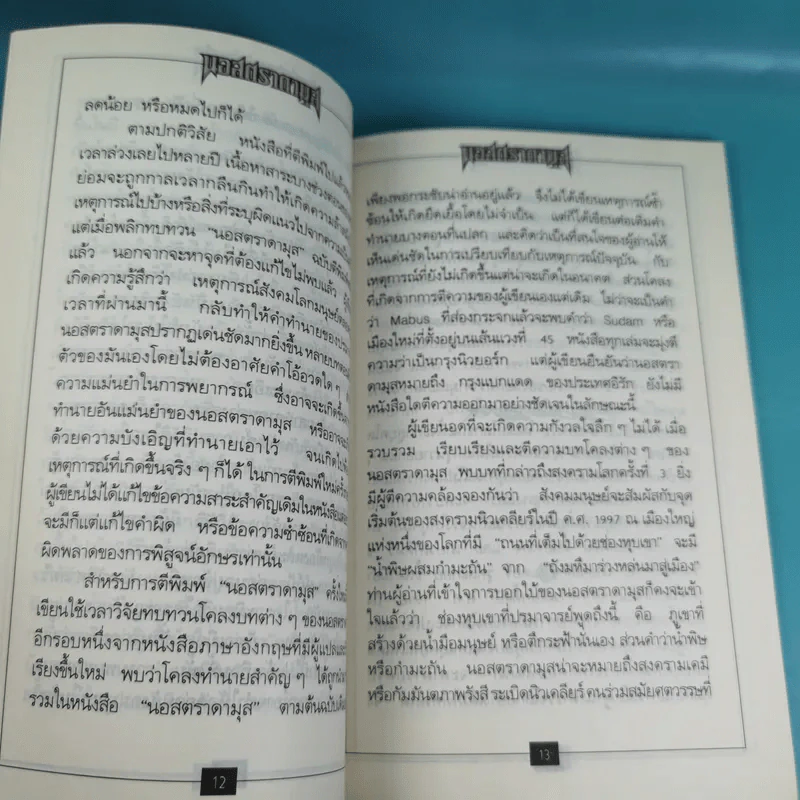 นอสตราดามุส
ลดน้อย หรือหมดไปก็ได้
ตามปกติวิสัย หนังสือที่ตีพิมพ์ไปแล้ว
เวลาล่วงเลยไปหลายปี เนื้อหาสาระบางช่วงตอน
ย่อมจะถูกกาลเวลากลืนกินทำให้เกิดความ
เหตุการณ์ไปบ้างหรือสิ่งที่ระบุผิดแนวไปจากความ
แต่เมื่อพลิกทบทวน “นอสตราดามุส” ฉบับตีพิมพ์
แล้ว นอกจากจะหาจุดที่ต้องแก้ไขไม่พบแล้ว
เกิดความรู้สึกว่า เหตุการณ์สังคมโลกมนุษย์
เวลาที่ผ่านมานี้ กลับทำให้คำทำนายของ
นอสตราดามุสปรากฏเด่นชัดมากยิ่งขึ้น หลายบท
ตัวของมันเองโดยไม่ต้องอาศัยคำโอ้อวดใด ๆ
ความแม่นยำในการพยากรณ์ ซึ่งอาจจะเกิดขึ้น
ทำนายอันแม่นยำของนอสตราดามุส หรืออาจจะ
ด้วยความบังเอิญที่ทำนายเอาไว้ จนเกิดไป
เหตุการณ์ที่เกิดขึ้นจริง ๆ ก็ได้ ในการตีพิมพ์ใหม่ครั้ง
ผู้เขียนไม่ได้แก้ไขข้อความสาระสำคัญเดิมในหนังสือ
จะมีก็แต่แก้ไขคำผิด หรือข้อความซ้ำซ้อนที่เกิด
ผิดพลาดของการพิสูจน์อักษรเท่านั้น
สำหรับการตีพิมพ์ “นอสตราดามุส” ครั้ง
เขียนใช้เวลาวิจัยทบทวนโคลงบทต่าง ๆ ของนอสตรา
อีกรอบหนึ่งจากหนังสือภาษาอังกฤษที่มีผู้แปลและ
เรียงขึ้นใหม่ พบว่าโคลงทำนายสำคัญ ๆ ได้ถูก
รวมในหนังสือ “นอสตราดามุส” ตามต้นฉบับเดิม
12
นอสตราดามุส
เพียงพอกระชับน่าอ่านอยู่แล้ว จึงไม่ได้เขียนเหตุการณ์ซ้ำ
ซ้อนให้เกิดยืดเยื้อโดยไม่จำเป็น แต่ก็ได้เขียนต่อเติมคำ
ทำนายบางตอนที่แปลก และคิดว่าเป็นที่สนใจของผู้อ่านให้
เห็นเด่นชัดในการเปรียบเทียบกับเหตุการณ์ปัจจุบัน กับ
เหตุการณ์ที่ยังไม่เกิดขึ้นแต่น่าจะเกิดในอนาคต ส่วนโคลง
ที่เกิดจากการตีความของผู้เขียนเองแต่เดิม ไม่ว่าจะเป็นคำ
ว่า Mabus ที่ส่องกระจกแล้วจะพบคำว่า Sudam หรือ
เมืองใหม่ที่ตั้งอยู่บนเส้นแวงที่ 45 หนังสือทุกเล่มจะมุ่งตี
ความว่าเป็นกรุงนิวยอร์ก แต่ผู้เขียนยืนยันว่านอสตรา
ดามุสหมายถึง กรุงแบกแดด ของประเทศอิรัก ยังไม่มี
หนังสือใดตีความออกมาอย่างชัดเจนในลักษณะนี้
ผู้เขียนอดที่จะเกิดความกังวลใจลึก ๆ ไม่ได้ เมื่อ
รวบรวม เรียบเรียงและตีความบทโคลงต่าง ๆ ของ
นอสตราดามุส พบบทที่กล่าวถึงสงครามโลกครั้งที่ 3 ยิ่ง
มีผู้ตีความคล้องจองกันว่า สังคมมนุษย์จะสัมผัสกับจุด
เริ่มต้นของสงครามนิวเคลียร์ในปี ค.ศ. 1997 ณ เมืองใหญ่
แห่งหนึ่งของโลกที่มี “ถนนที่เต็มไปด้วยช่องหุบเขา” จะมี
“น้ำพิษผสมกำมะถัน” จาก “ถังมหึมาร่วงหล่นมาสู่เมือง”
ท่านผู้อ่านที่เข้าใจการบอกใบ้ของนอสตราดามุสก็คงจะเข้า
ใจแล้วว่า ช่องหุบเขาที่ปรมาจารย์พูดถึงนี้ คือ ภูเขาที่
สร้างด้วยน้ำมือมนุษย์ หรือตึกระฟ้านั่นเอง ส่วนคำว่าน้ำพิษ
หรือกำมะถัน นอสตราดามุสน่าจะหมายถึงสงครามเคมี
หรือกัมมันตภาพรังสี ระเบิดนิวเคลียร์ คนร่วมสมัยศตวรรษที่
13